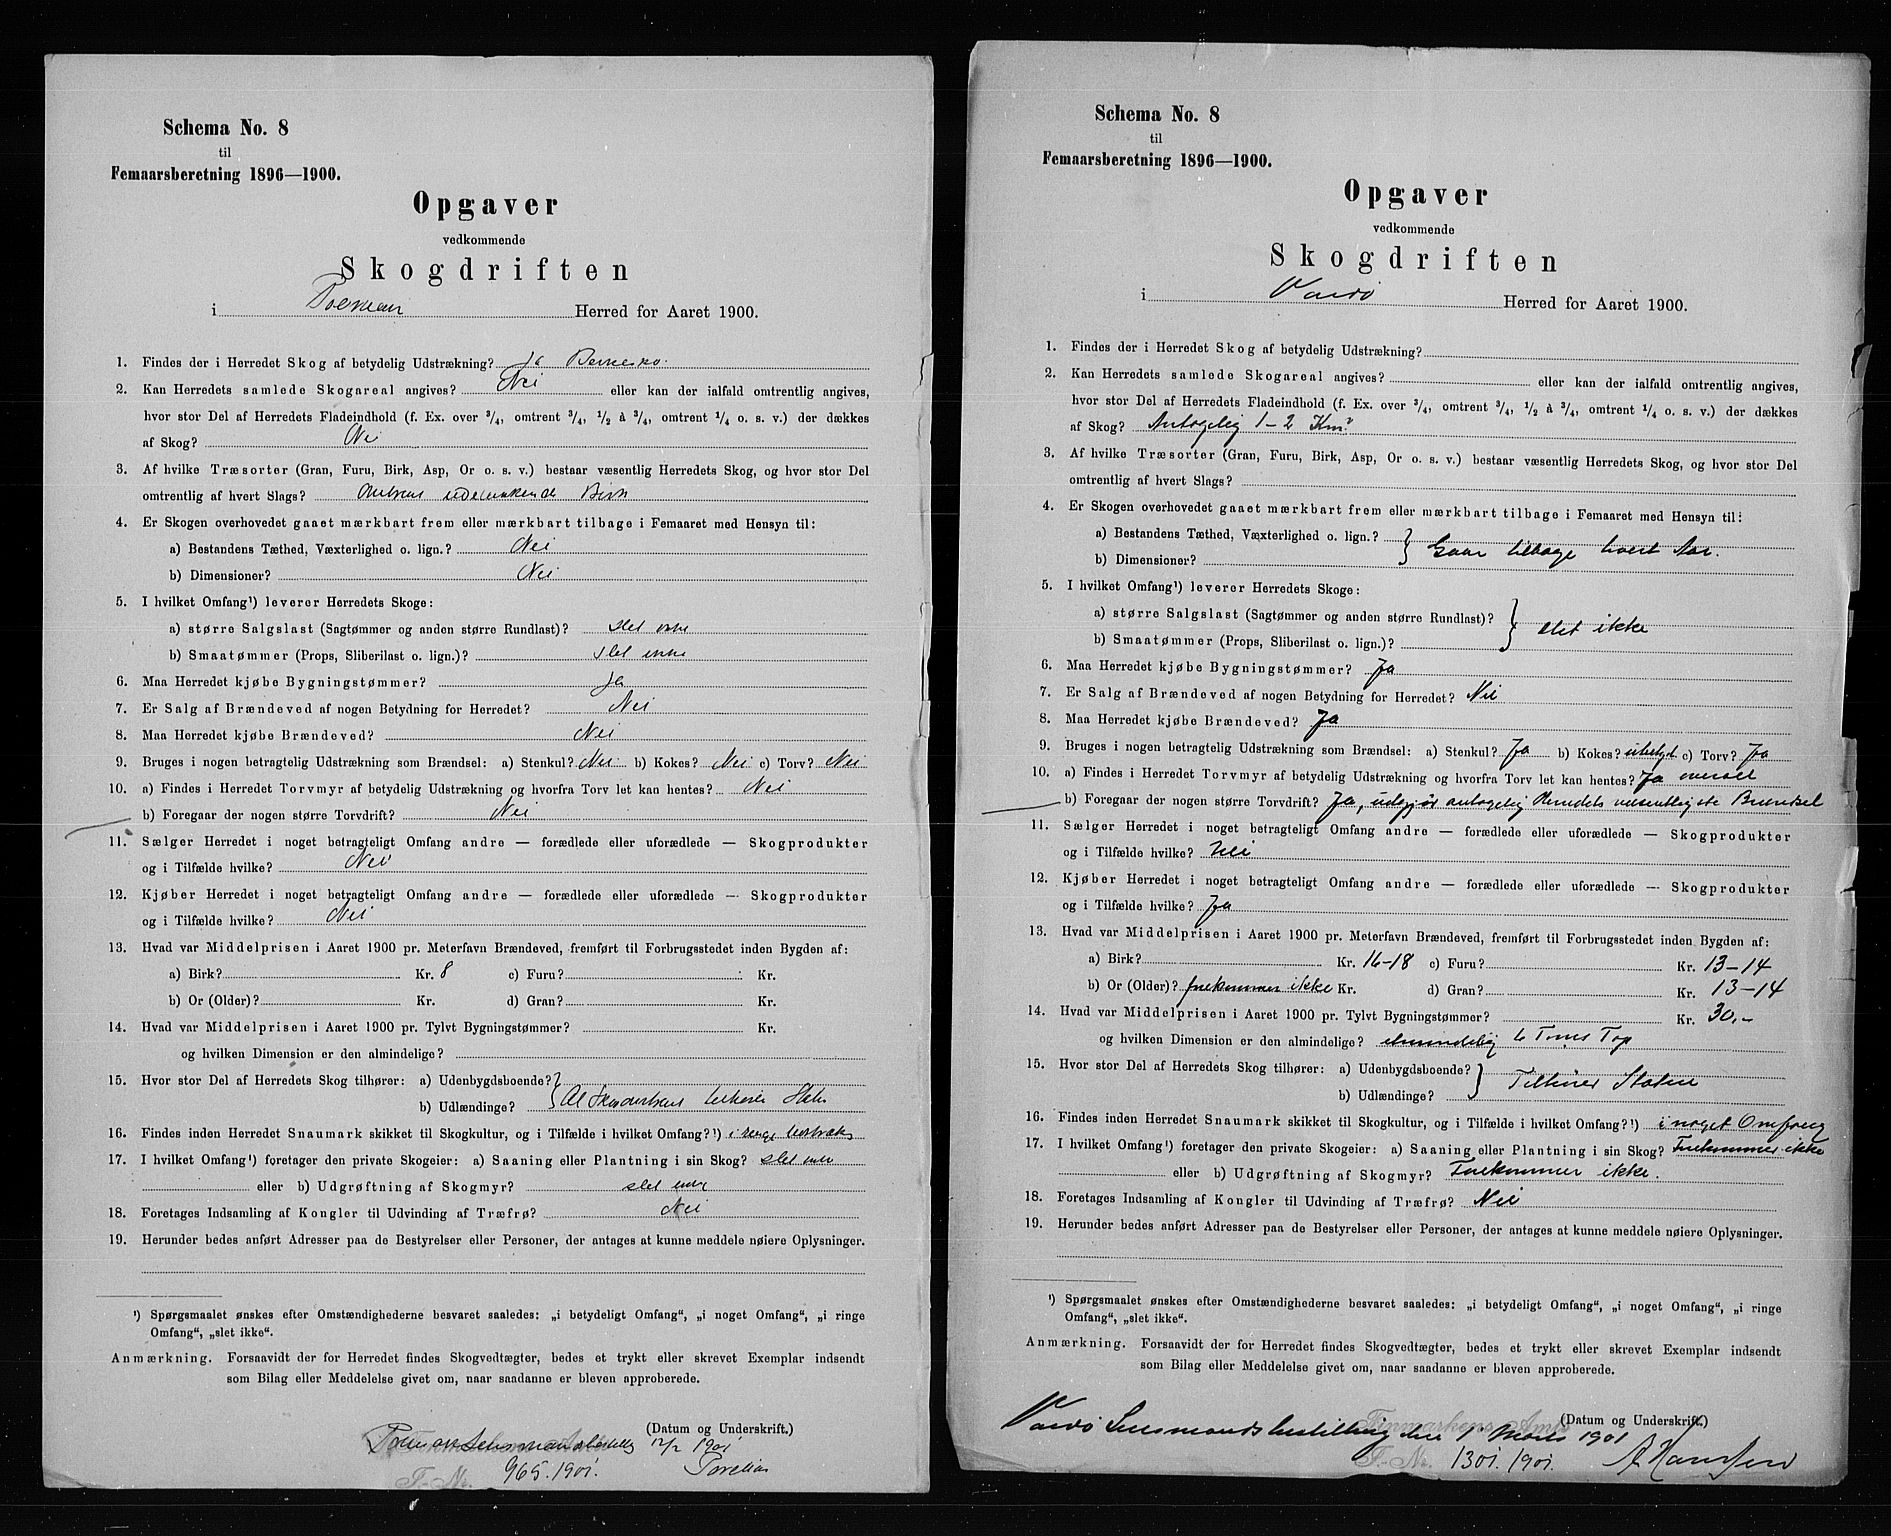 Schema No. 8
til
Femaarsberetning 1896—1900.
Opgaver
vedkommende
Skogdriften
i Polmak Herred for Aaret 1900.
1. Findes der i Herredet Skog af betydelig Udstrækning? Ja
2. Kan Herredets samlede Skogareal angives? Nei eller kan der ialfald omtrentlig angives,
hvor stor Del af Herredets Fladeindhold (f. Ex. over ³/₄, omtrent ³/₄, ¹/₂ à ³/₄, omtrent ¹/₄ o. s. v.) der dækkes
af Skog? Nei
3. Af hvilke Træsorter (Gran, Furu, Birk, Asp, Or o. s. v.) bestaar væsentlig Herredets Skog, og hvor stor Del
omtrentlig af hvert Slags? udelukkende Birk
4. Er Skogen overhovedet gaaet mærkbart frem eller mærkbart tilbage i Femaaret med Hensyn til:
a) Bestandens Tæthed, Væxterlighed o. lign.? Nei
b) Dimensioner? Nei
5. I hvilket Omfang¹) leverer Herredets Skoge:
a) større Salgslast (Sagtømmer og anden større Rundlast)? slet ikke
b) Smaatømmer (Props, Sliberilast o. lign.)? slet ikke
6. Maa Herredet kjøbe Bygningstømmer? Ja
7. Er Salg af Brændeved af nogen Betydning for Herredet? Nei
8. Maa Herredet kjøbe Brændeved? Nei
9. Bruges i nogen betragtelig Udstrækning som Brændsel: a) Stenkul? Nei b) Kokes? Nei c) Torv? Nei
10. a) Findes i Herredet Torvmyr af betydelig Udstrækning og hvorfra Torv let kan hentes? Nei
b) Foregaar der nogen større Torvdrift? Nei
11. Sælger Herredet i noget betragteligt Omfang andre — forædlede eller uforædlede — Skogprodukter
og i Tilfælde hvilke? Nei
12. Kjøber Herredet i noget betragteligt Omfang andre — forædlede eller uforædlede — Skogprodukter
og i Tilfælde hvilke? Nei
13. Hvad var Middelprisen i Aaret 1900 pr. Meterfavn Brændeved, fremført til Forbrugsstedet inden Bygden af:
a) Birk? Kr. 8 c) Furu? Kr.
b) Or (Older)? Kr. d) Gran? Kr.
14. Hvad var Middelprisen i Aaret 1900 pr. Tylvt Bygningstømmer? Kr.
og hvilken Dimension er den almindelige?
15. Hvor stor Del af Herredets Skog tilhører: a) Udenbygdsboende?
b) Udlændinge? Al
16. Findes inden Herredet Snaumark skikket til Skogkultur, og i Tilfælde i hvilket Omfang?¹) i ringe
17. I hvilket Omfang¹) foretager den private Skogeier: a) Saaning eller Plantning i sin Skog? slet ikke
eller b) Udgrøftning af Skogmyr? slet ikke
18. Foretages Indsamling af Kongler til Udvinding af Træfrø? Nei
19. Herunder bedes anført Adresser paa de Bestyrelser eller Personer, der antages at kunne meddele nøiere Oplysninger.
¹) Spørgsmaalet ønskes efter Omstændighederne besvaret saaledes: „i betydeligt Omfang“, „i noget Omfang“, „i ringe
Omfang“, „slet ikke“.
Anmærkning. Forsaavidt der for Herredet findes Skogvedtægter, bedes et trykt eller skrevet Exemplar indsendt
som Bilag eller Meddelelse givet om, naar saadanne er bleven approberede.
(Datum og Underskrift.)
Polmak Lensmandsbestilling 12/2 1901
F.-Nr. 965.1901.

Schema No. 8
til
Femaarsberetning 1896—1900.
Opgaver
vedkommende
Skogdriften
i Vardø Herred for Aaret 1900.
1. Findes der i Herredet Skog af betydelig Udstrækning?
2. Kan Herredets samlede Skogareal angives? eller kan der ialfald omtrentlig angives,
hvor stor Del af Herredets Fladeindhold (f. Ex. over ³/₄, omtrent ³/₄, ¹/₂ à ³/₄, omtrent ¹/₄ o. s. v.) der dækkes
af Skog? Antagelig 1-2 Km²
3. Af hvilke Træsorter (Gran, Furu, Birk, Asp, Or o. s. v.) bestaar væsentlig Herredets Skog, og hvor stor Del
omtrentlig af hvert Slags?
4. Er Skogen overhovedet gaaet mærkbart frem eller mærkbart tilbage i Femaaret med Hensyn til:
a) Bestandens Tæthed, Væxterlighed o. lign.?
b) Dimensioner? Gaar tilbage hvert Aar.
5. I hvilket Omfang¹) leverer Herredets Skoge:
a) større Salgslast (Sagtømmer og anden større Rundlast)?
b) Smaatømmer (Props, Sliberilast o. lign.)? slet ikke
6. Maa Herredet kjøbe Bygningstømmer? Ja
7. Er Salg af Brændeved af nogen Betydning for Herredet? Nei
8. Maa Herredet kjøbe Brændeved? Ja
9. Bruges i nogen betragtelig Udstrækning som Brændsel: a) Stenkul? Ja b) Kokes? ubetyd c) Torv? Ja
10. a) Findes i Herredet Torvmyr af betydelig Udstrækning og hvorfra Torv let kan hentes? Ja overalt
b) Foregaar der nogen større Torvdrift? Ja, udgjør antagelig Herredets væsentligste Brændsel
11. Sælger Herredet i noget betragteligt Omfang andre — forædlede eller uforædlede — Skogprodukter
og i Tilfælde hvilke? Nei
12. Kjøber Herredet i noget betragteligt Omfang andre — forædlede eller uforædlede — Skogprodukter
og i Tilfælde hvilke? Ja
13. Hvad var Middelprisen i Aaret 1900 pr. Meterfavn Brændeved, fremført til Forbrugsstedet inden Bygden af:
a) Birk? Kr. 16-18 c) Furu? Kr. 13-14
b) Or (Older)? forekommer ikke Kr. d) Gran? Kr. 13-14
14. Hvad var Middelprisen i Aaret 1900 pr. Tylvt Bygningstømmer? Kr. 30,-
og hvilken Dimension er den almindelige? almindelig 6 Toms Top
15. Hvor stor Del af Herredets Skog tilhører: a) Udenbygdsboende?
b) Udlændinge? Tilhører Staten
16. Findes inden Herredet Snaumark skikket til Skogkultur, og i Tilfælde i hvilket Omfang?¹) i noget Omfang
17. I hvilket Omfang¹) foretager den private Skogeier: a) Saaning eller Plantning i sin Skog? Forekommer ikke
eller b) Udgrøftning af Skogmyr? Forekommer ikke.
18. Foretages Indsamling af Kongler til Udvinding af Træfrø? Nei
19. Herunder bedes anført Adresser paa de Bestyrelser eller Personer, der antages at kunne meddele nøiere Oplysninger.
¹) Spørgsmaalet ønskes efter Omstændighederne besvaret saaledes: „i betydeligt Omfang“, „i noget Omfang“, „i ringe
Omfang“, „slet ikke“.
Anmærkning. Forsaavidt der for Herredet findes Skogvedtægter, bedes et trykt eller skrevet Exemplar indsendt
som Bilag eller Meddelelse givet om, naar saadanne er bleven approberede.
Finmarkens Amt (Datum og Underskrift.)
Vardø Lensmandsbestilling den 1 Marts 1901
F.-Nr. 1301.1901. A Hansen